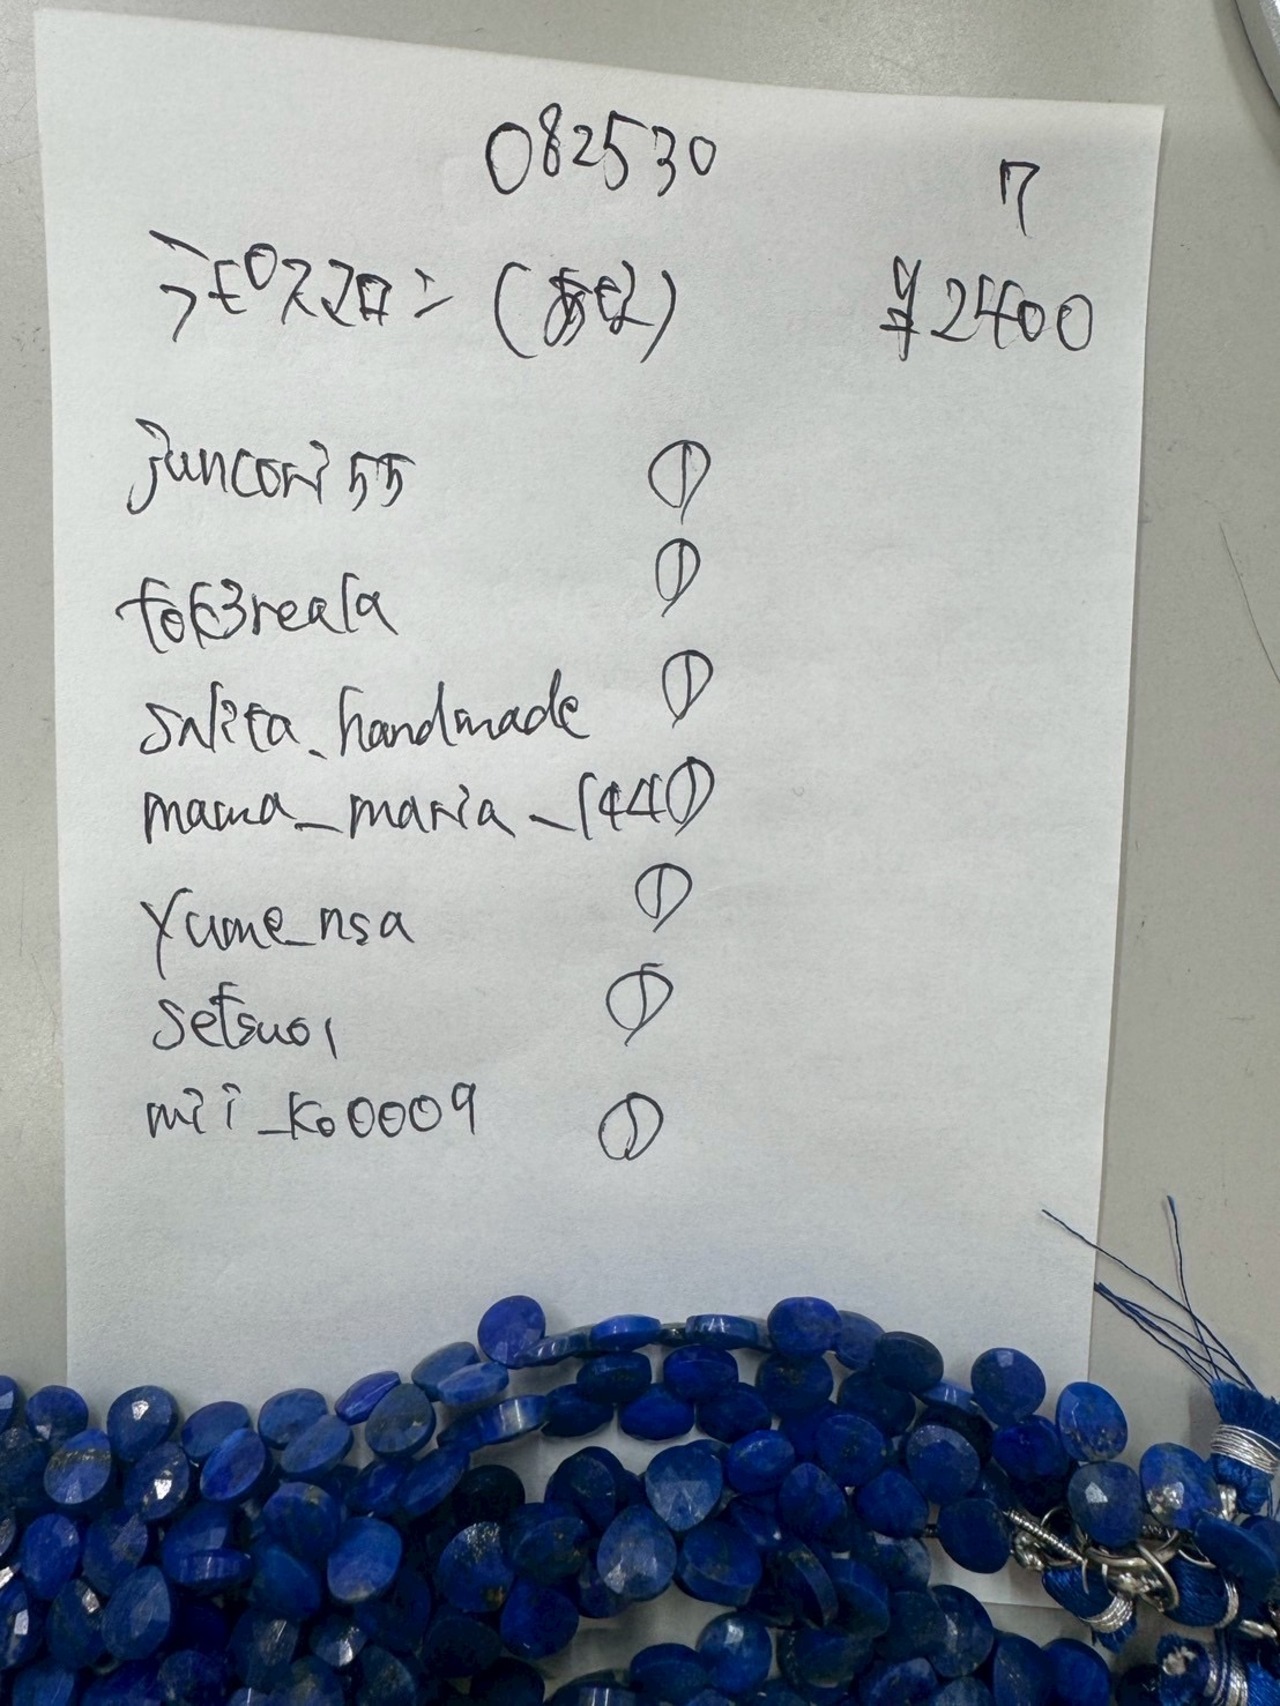 082530
7
ラピスマロン (あな)
¥2400
juncori55 ①
tok3reala ①
snita_handmade ①
mama_maria_144 ①
yume_nsa ①
setsuo1 ①
mii_ko0009 ①